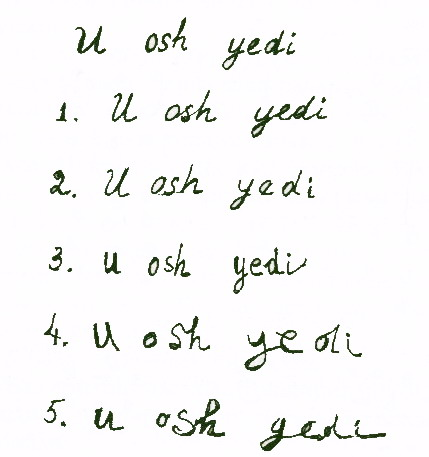 U osh yedi
1. U osh yedi
2. U osh yedi
3. u osh yedi
4. U osh yedi
5. u osh yedi